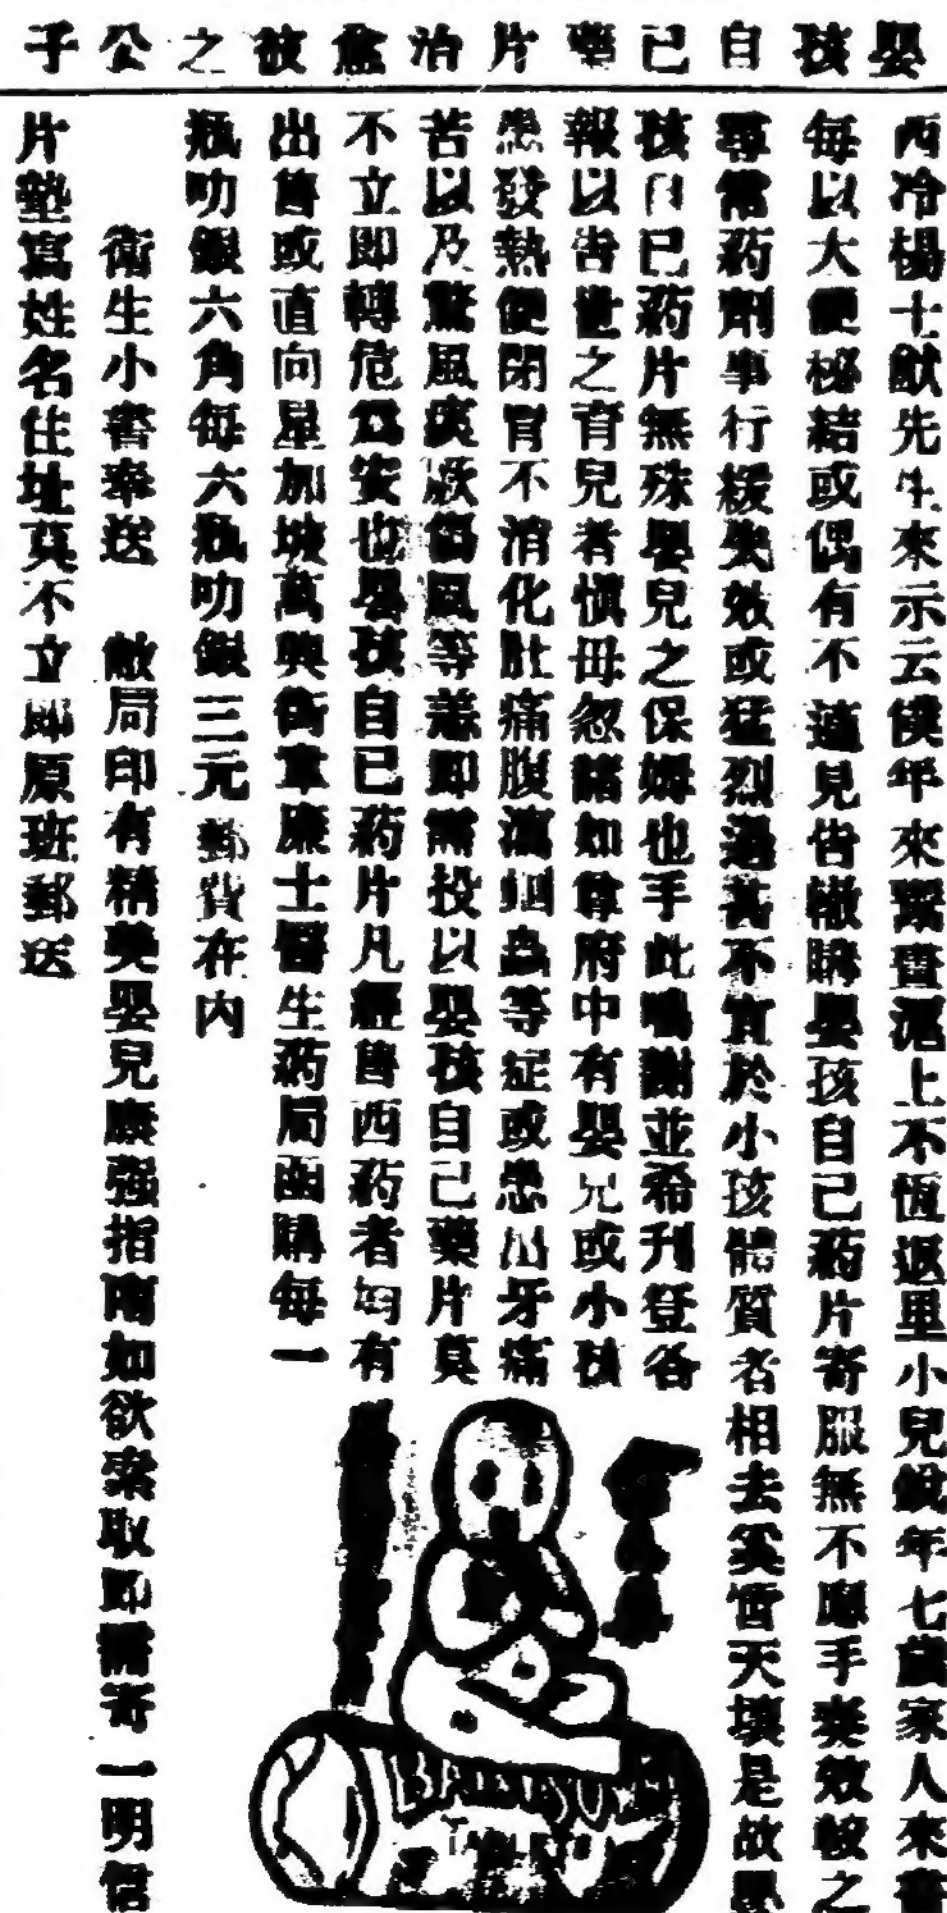 嬰孩自已藥片治愈彼之公子
西冷楊士猷先生來示云僕年來鬻書滬上不恆返里小兒銳年七歲家人來音
每以大便秘結或偶有不適見告輒購嬰孩自己葯片寄服無不應手奏效較之
尋常葯劑事行緩失效或猛烈過甚不宜於小孩體質者相去奚啻天壤是故嬰
孩自已葯片無殊嬰兒之保姆也手此鳴謝並希刊登各
報以告世之育兒者愼毋忽諸如尊府中有嬰兒或小孩
患發熱便閉胃不消化肚痛腹瀉蛔蟲等症或患出牙痛
苦以及驚風痰厥傷風等恙即需投以嬰孩自己藥片莫
不立即轉危爲安也嬰孩自已葯片凡經售西葯者均有
出售或直向星加坡萬興街韋廉士醫生葯局函購每一
瓶叻銀六角每六瓶叻銀三元郵費在內
衛生小書奉送 敝局印有精美嬰兒康强指南如欲索取即需寄一明信
片塾寫姓名住址莫不立即原班郵送